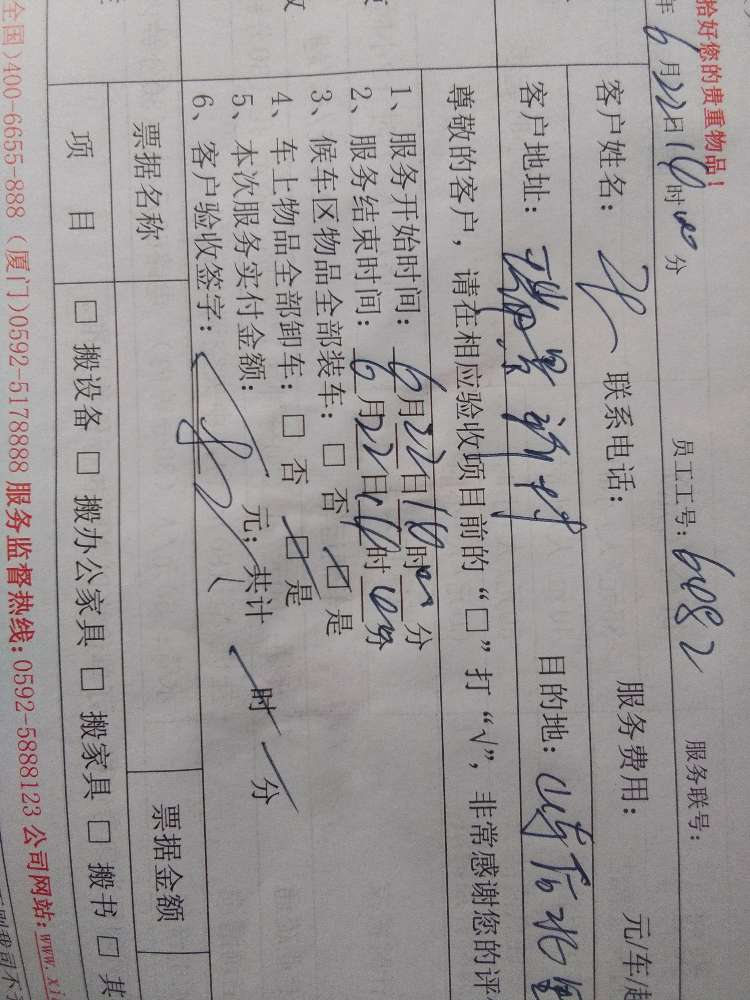 拾好您的贵重物品！
年6月22日16时00分 员工工号：6082 服务联号：
客户姓名： 联系电话： 服务费用： 元/车/趟
客户地址：瑞景新村 目的地：
尊敬的客户，请在相应验收项目前的“□”打“√”，非常感谢您的评
1、服务开始时间：6月22日16时00分
2、服务结束时间：6月22日16时00分
3、候车区物品全部装车：□ 否 □ 是
4、车上物品全部卸车：□ 否 □ 是
5、本次服务实付金额： 元；共计 时 分
6、客户验收签字：
票据名称 票据金额
项 目 □ 搬设备 □ 搬办公家具 □ 搬家具 □ 搬书 □ 其
全国)400-6655-888 (厦门)0592-5178888 服务监督热线：0592-5888123 公司网站：www.xi